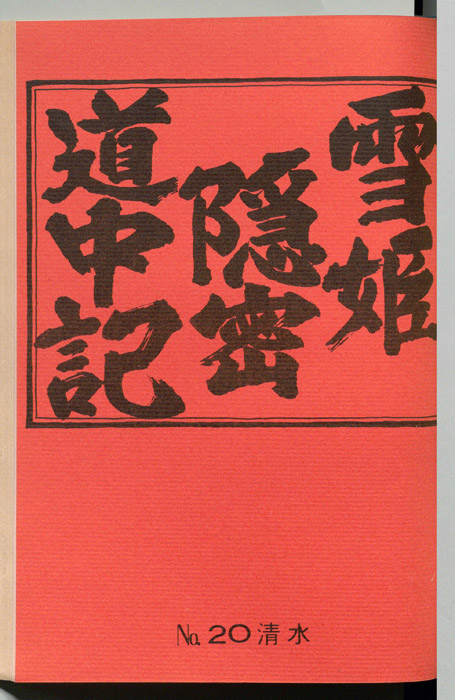 雪姫
隠密
道中記
No. 20 清水